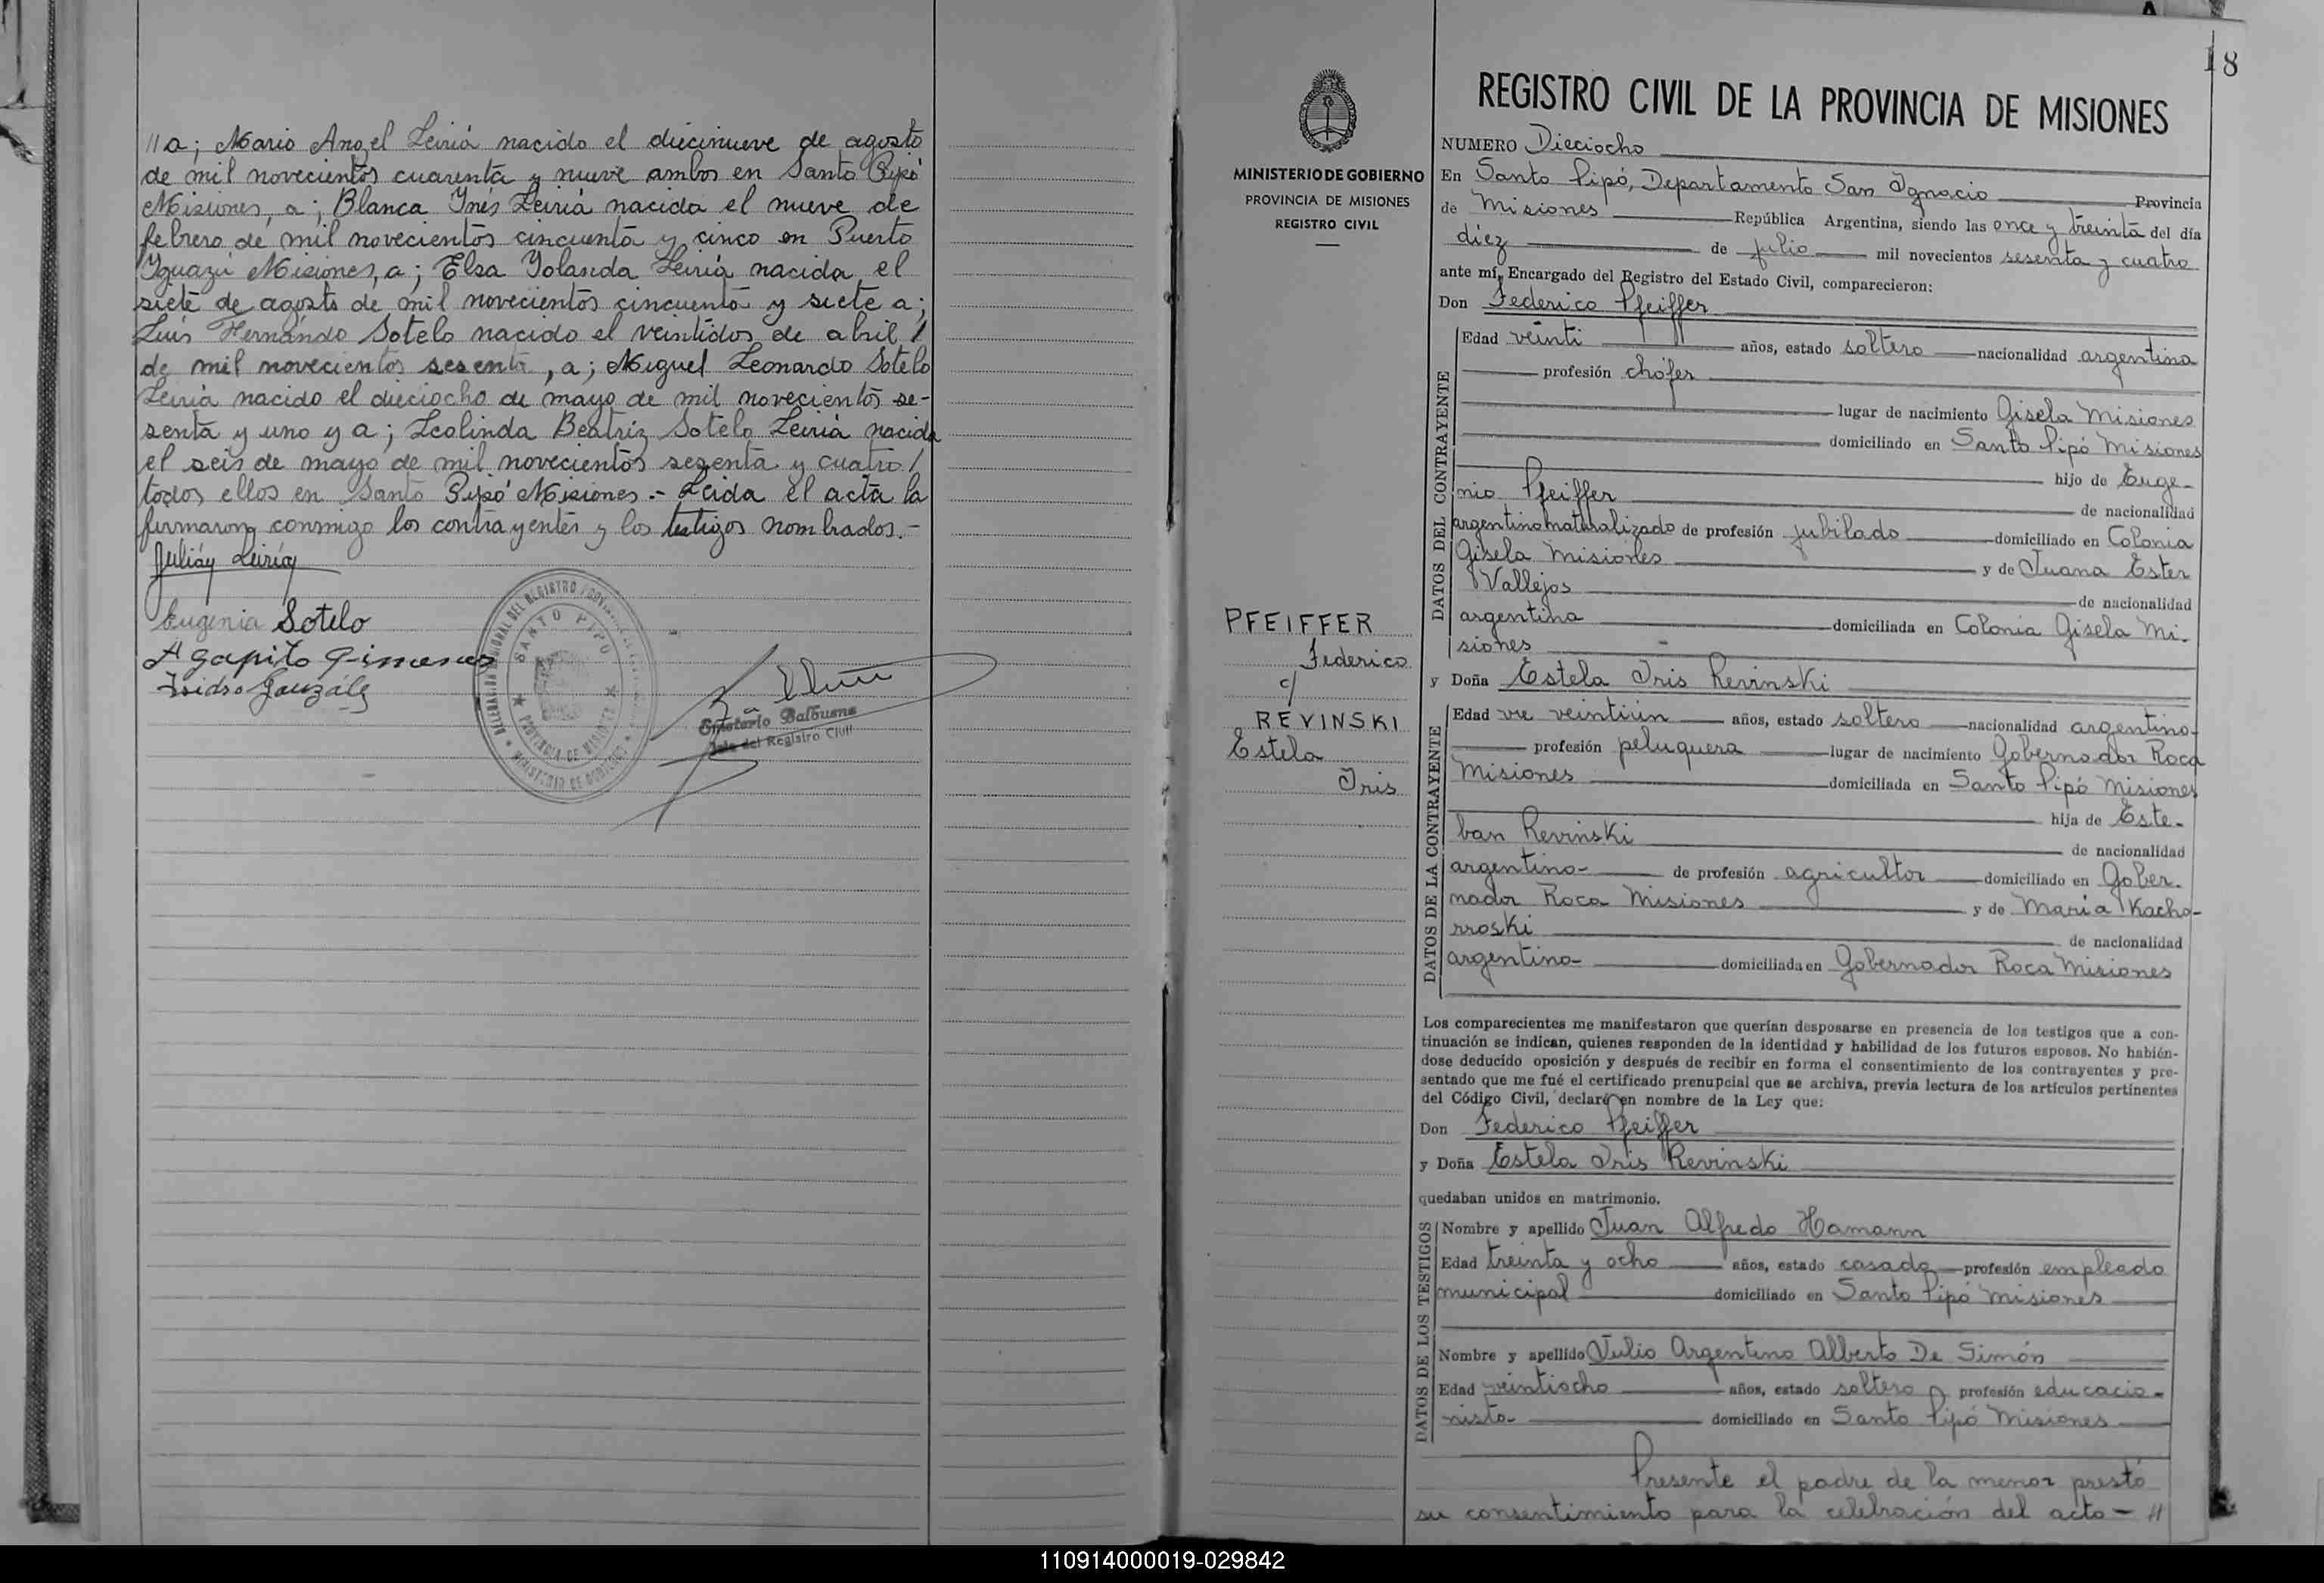 //a; Mario Angel Leiria nacido el diecinueve de agosto
de mil novecientos cuarenta y nueve ambos en Santo Pipó
Misiones, a; Blanca Ynés Leiria nacida el nueve de
febrero de mil novecientos cincuenta y cinco en Puerto
Yguazú Misiones, a; Elsa Yolanda Leiria nacida el
siete de agosto de mil novecientos cincuenta y siete a;
Luis Hernándo Sotelo nacido el veintidos de abril /
de mil novecientos sesenta, a; Miguel Leonardo Sotelo
Leiria nacido el dieciocho de mayo de mil novecientos se-
senta y uno y a; Leolinda Beatriz Sotelo Leiria nacida
el seis de mayo de mil novecientos sesenta y cuatro /
todos ellos en Santo Pipó Misiones.- Leida el acta la
firmaron conmigo los contrayentes y los testigos nombrados.-
Julián Leiria
Eugenia Sotelo
Agapito Gimenez
Isidro González
SANTO PIPO
PROVINCIA DE MISIONES
MINISTERIO DE GOBIERNO
Balbuena
Jefe del Registro Civil
18
MINISTERIO DE GOBIERNO
PROVINCIA DE MISIONES
REGISTRO CIVIL
PFEIFFER
Federico
c/
REVINSKI
Estela
Iris
REGISTRO CIVIL DE LA PROVINCIA DE MISIONES
NUMERO Dieciocho
En Santo Pipó, Departamento San Ignacio Provincia
de Misiones República Argentina, siendo las once y treinta del día
diez de julio mil novecientos sesenta y cuatro
ante mí, Encargado del Registro del Estado Civil, comparecieron:
Don Federico Pfeiffer
DATOS DEL CONTRAYENTE
Edad veinti años, estado soltero nacionalidad argentina
profesión chófer
lugar de nacimiento Gisela Misiones
domiciliado en Santo Pipó Misiones
hijo de Euge-
nio Pfeiffer de nacionalidad
argentino naturalizado de profesión jubilado domiciliado en Colonia
Gisela Misiones y de Juana Ester
Vallejos de nacionalidad
argentina domiciliada en Colonia Gisela Mi-
siones
y Doña Estela Iris Revinski
DATOS DE LA CONTRAYENTE
Edad ve veintiún años, estado soltera nacionalidad argentina
profesión peluquera lugar de nacimiento Gobernador Roca
Misiones domiciliada en Santo Pipó Misiones
hija de Este-
ban Revinski de nacionalidad
argentino de profesión agricultor domiciliado en Gober-
nador Roca Misiones y de María Kacho-
rroski de nacionalidad
argentina domiciliada en Gobernador Roca Misiones
Los comparecientes me manifestaron que querían desposarse en presencia de los testigos que a con-
tinuación se indican, quienes responden de la identidad y habilidad de los futuros esposos. No habién-
dose deducido oposición y después de recibir en forma el consentimiento de los contrayentes y pre-
sentado que me fué el certificado prenupcial que se archiva, previa lectura de los artículos pertinentes
del Código Civil, declaré en nombre de la Ley que:
Don Federico Pfeiffer
y Doña Estela Iris Revinski
quedaban unidos en matrimonio.
DATOS DE LOS TESTIGOS
Nombre y apellido Juan Alfredo Hamann
Edad treinta y ocho años, estado casado profesión empleado
municipal domiciliado en Santo Pipó Misiones
Nombre y apellido Julio Argentino Alberto De Simón
Edad veintiocho años, estado soltero profesión educacio-
nista domiciliado en Santo Pipó Misiones
Presente el padre de la menor prestó
su consentimiento para la celebración del acto - //
110914000019-029842